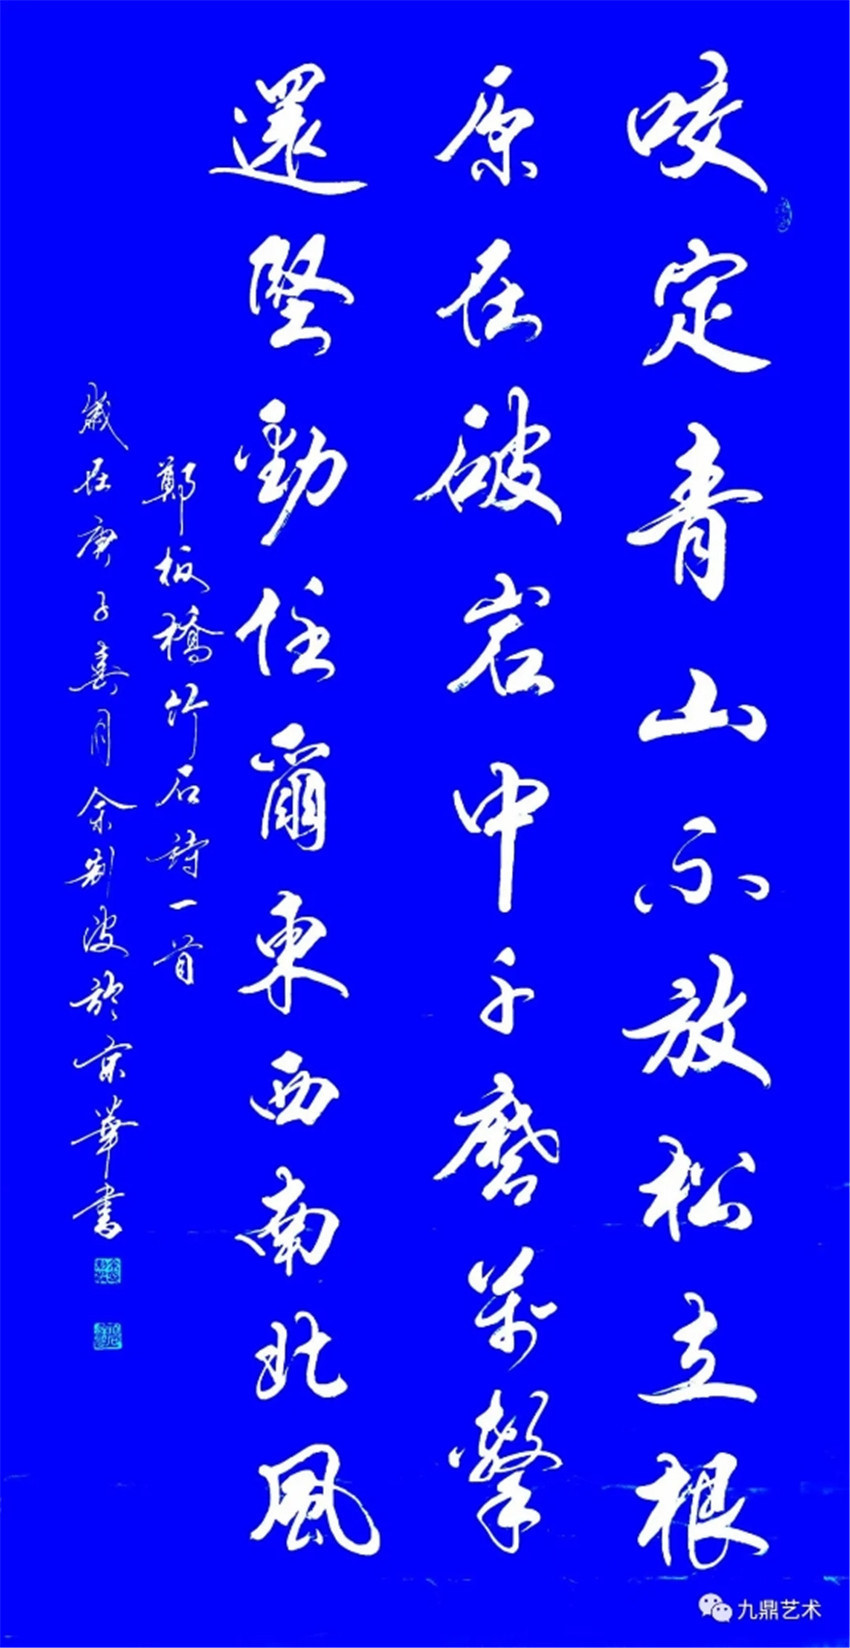 咬定青山不放松立根
原在破岩中千磨萬擊
還堅勁任爾東西南北風
鄭板橋竹石詩一首
歲在庚子月余波於京華書
九鼎艺术